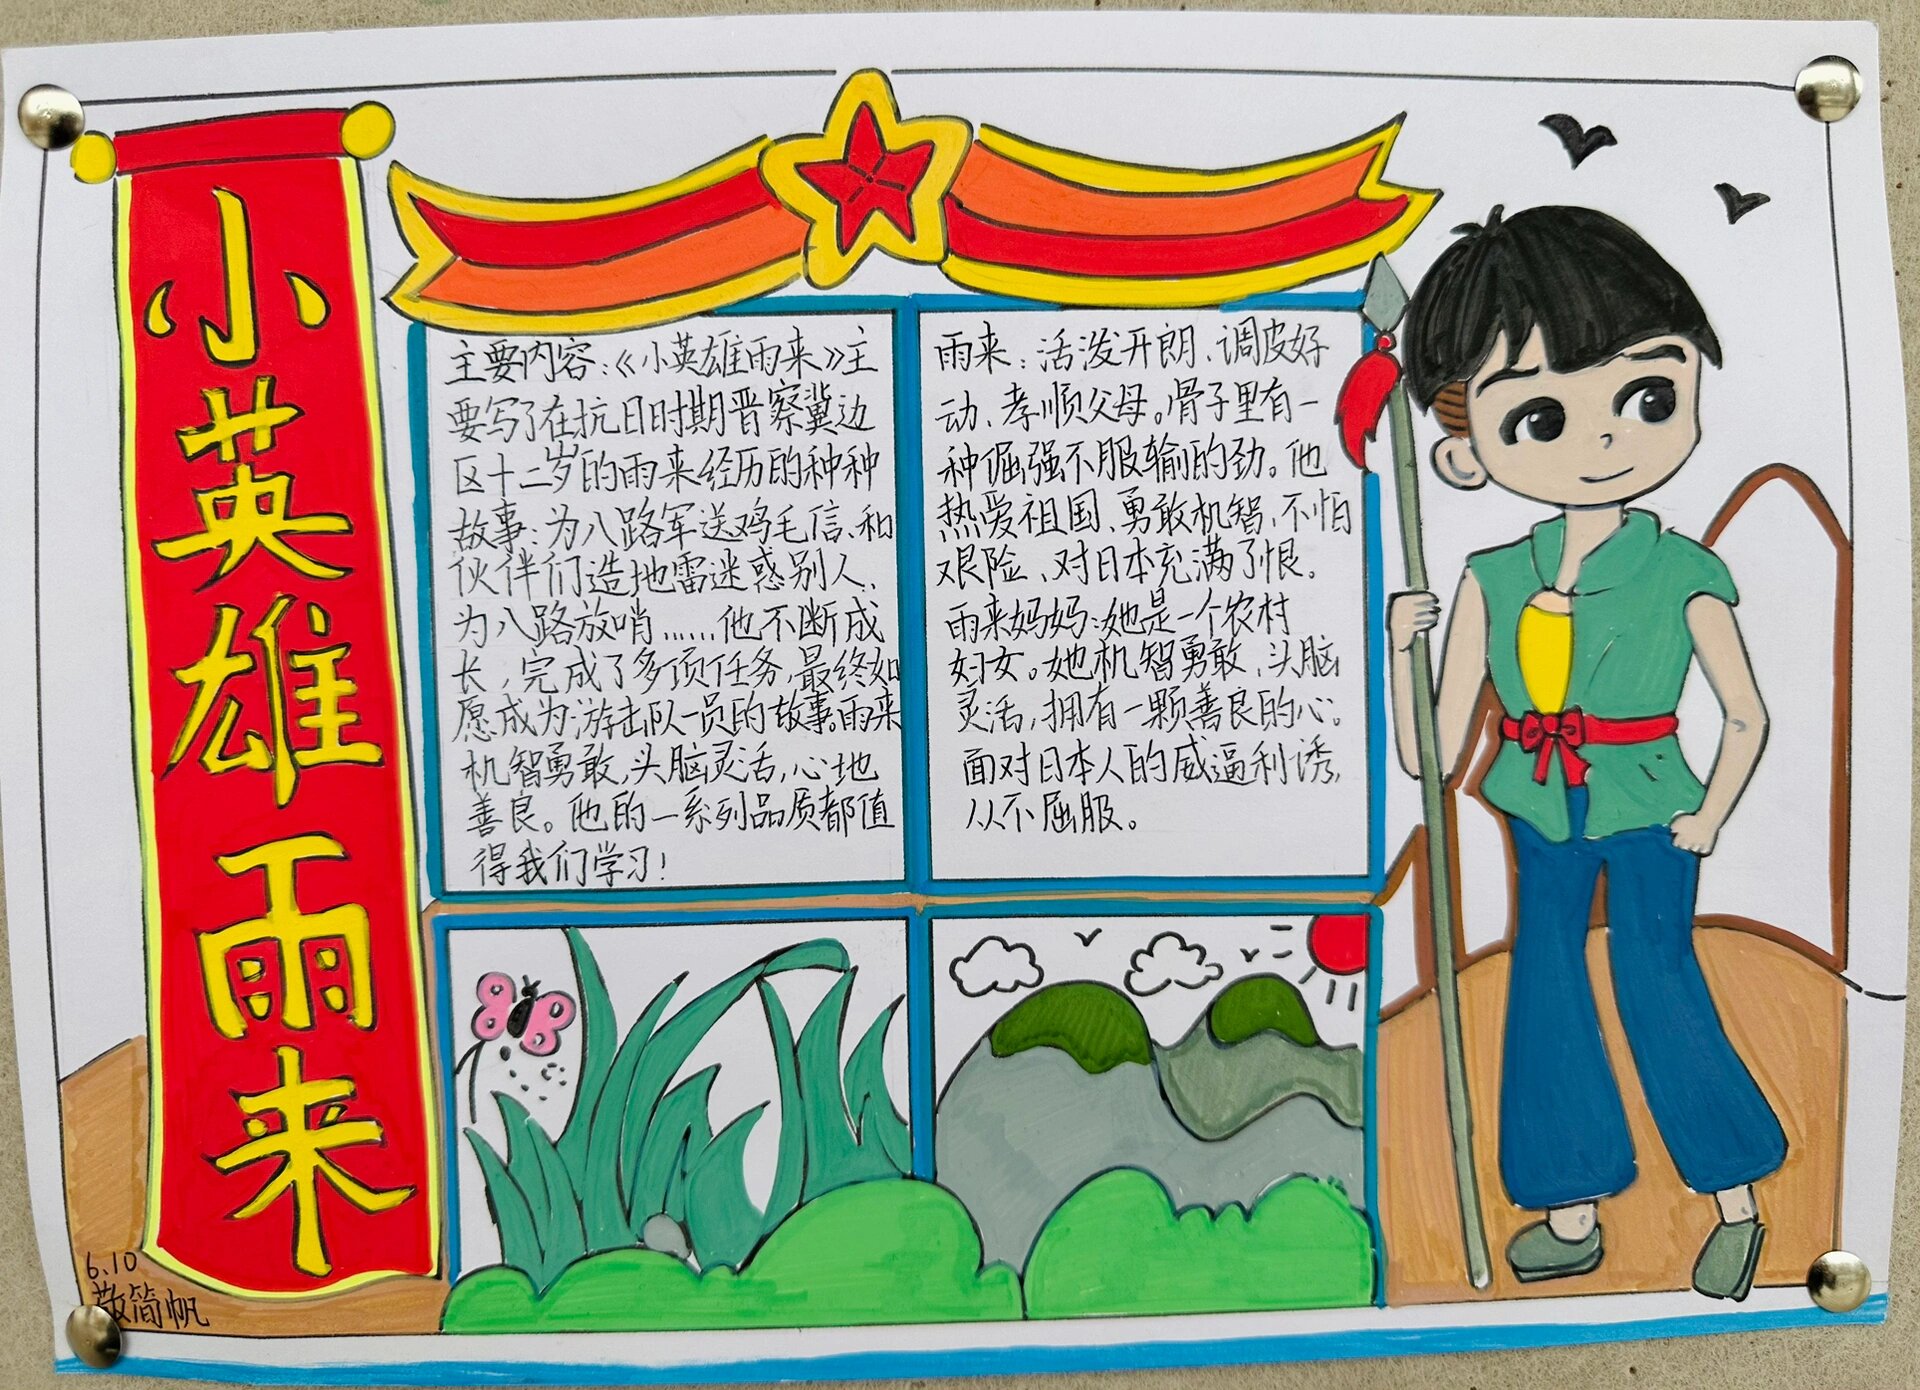 小英雄雨来
主要内容:《小英雄雨来》主
要写了在抗日时期晋察冀边
区十二岁的雨来经历的种种
故事:为八路军送鸡毛信、和
伙伴们造地雷迷惑别人、
为八路放哨……他不断成
长,完成了多项任务,最终如
愿成为游击队员的故事。雨来
机智勇敢,头脑灵活,心地
善良。他的一系列品质都值
得我们学习!
雨来:活泼开朗、调皮好
动、孝顺父母。骨子里有一
种倔强不服输的劲。他
热爱祖国、勇敢机智、不怕
艰险、对日本充满了恨。
雨来妈妈:她是一个农村
妇女。她机智勇敢、头脑
灵活,拥有一颗善良的心。
面对日本人的威逼利诱,
从不屈服。
6.10
简帆